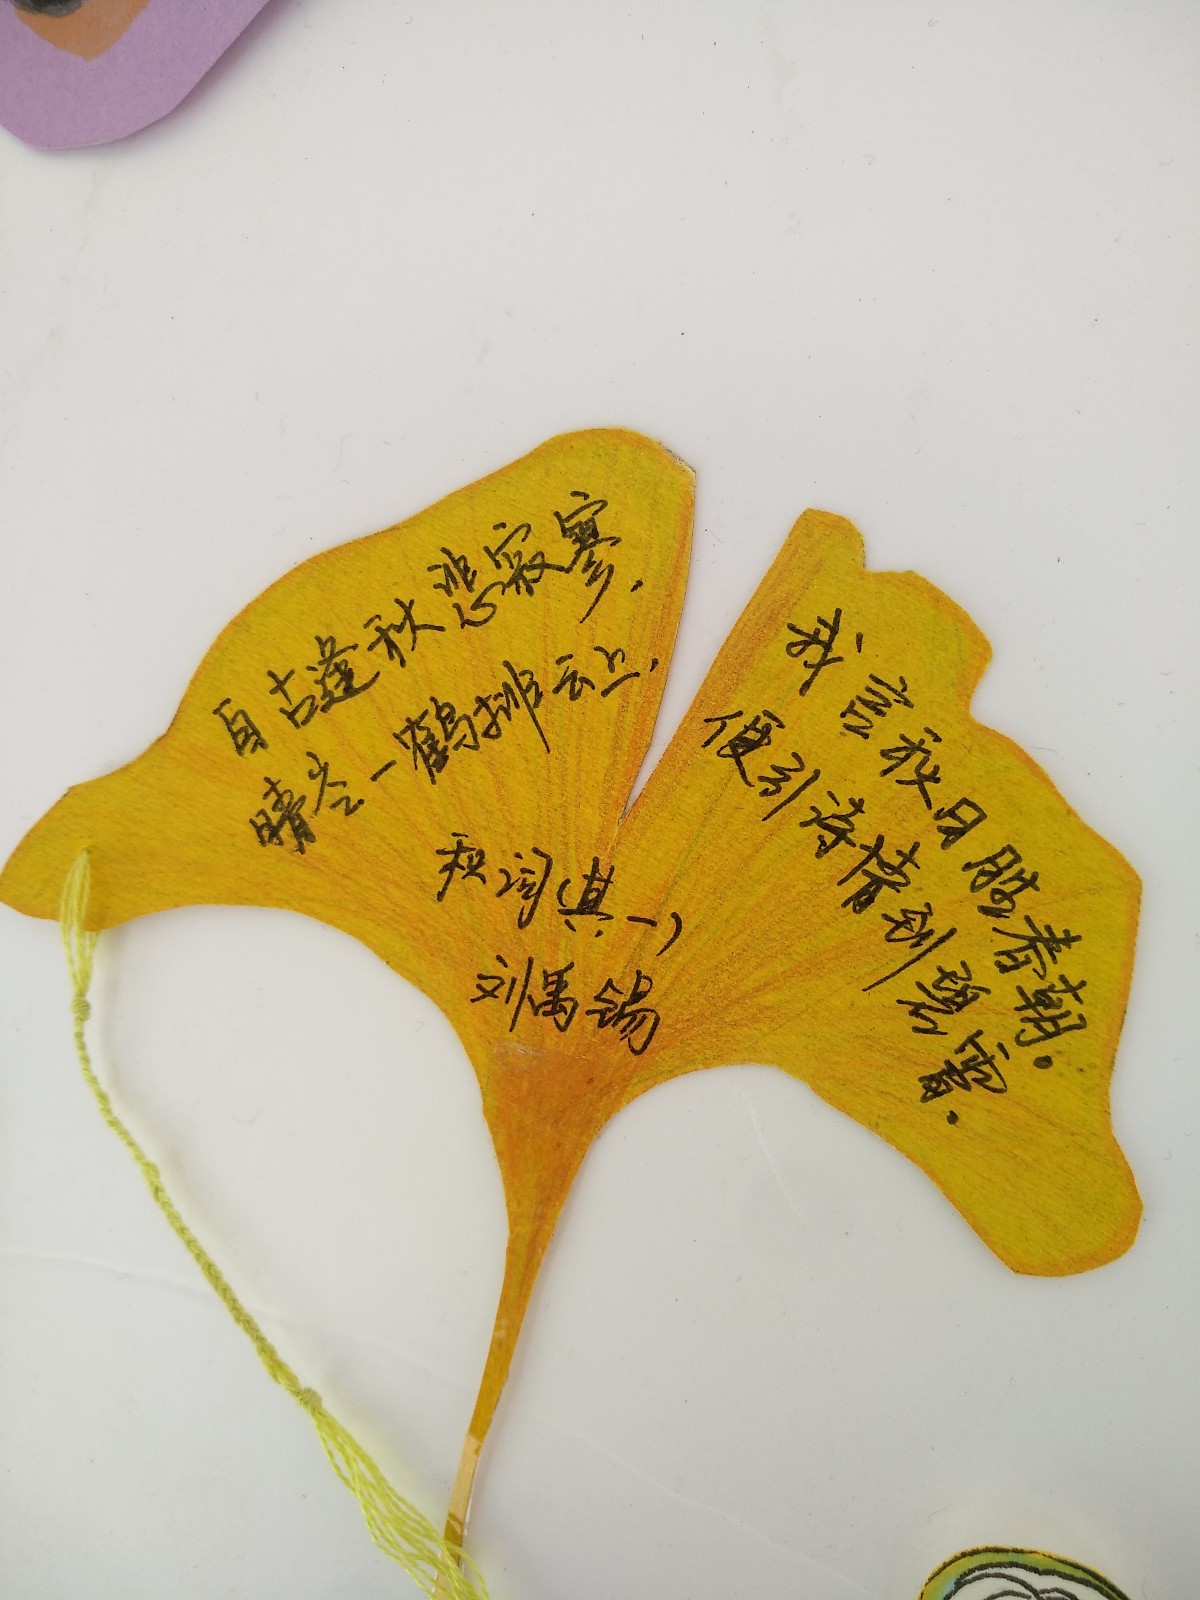 自古逢秋悲寂寥，
我言秋日胜春朝。
晴空一鹤排云上，
便引诗情到碧霄。
秋词（其一）
刘禹锡